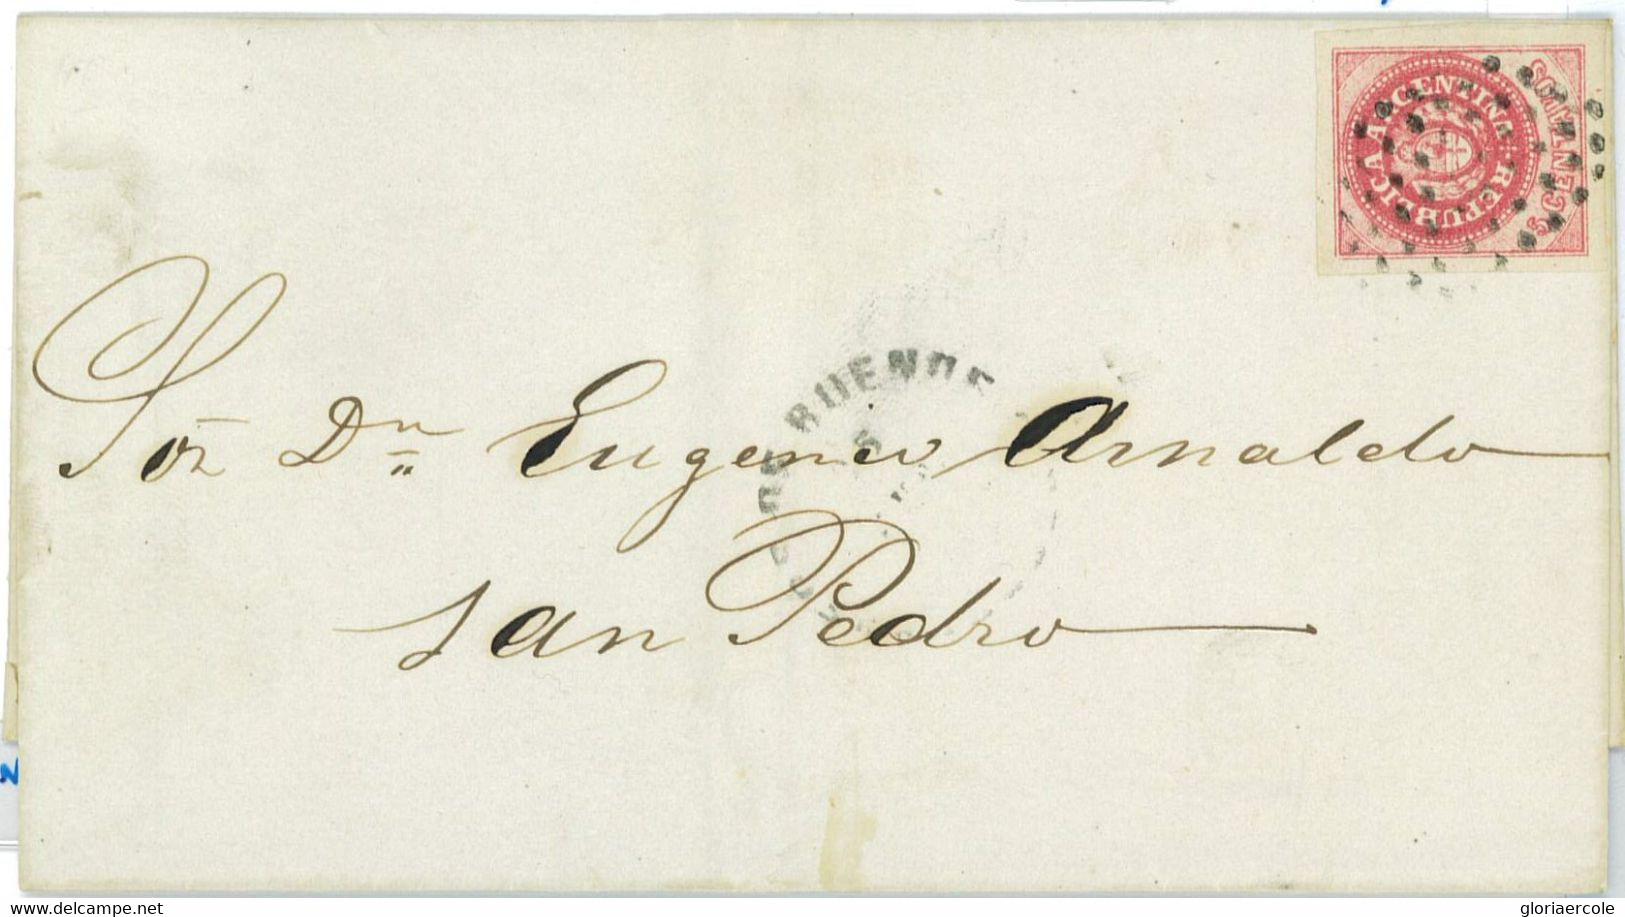 REPUBLICA ARGENTINA
5 CENTMOS
BUENOS
Sor Dn Eugenio Arnaldo
San Pedro
www.delcampe.net
gloriaercole